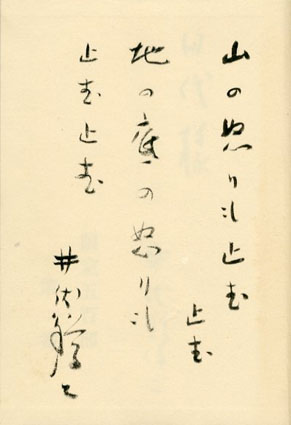 山の怒りも止む
止む
地の底の怒りも
止む止む
井伏鱒二